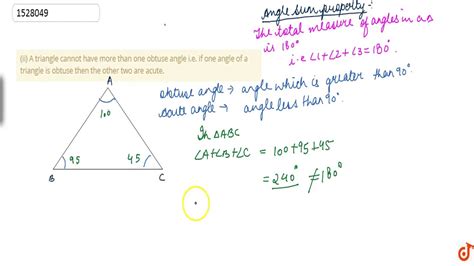 1528049
(ii) A triangle cannot have more than one obtuse angle i.e. if one angle of a
triangle is obtuse then the other two are acute.
Angle sum property :-
The total measure of angles in a Δ
is 180°
i.e ∠1+∠2+∠3=180°.
obtuse angle → angle which is greater than 90°
acute angle → angle less than 90°.
A
100
95
45
B
C
In ΔABC
∠A+∠B+∠C = 100+95+45
= 240° ≠ 180°
doubtnut